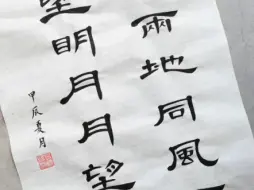 兩地同風
望明月月望
甲辰夏月